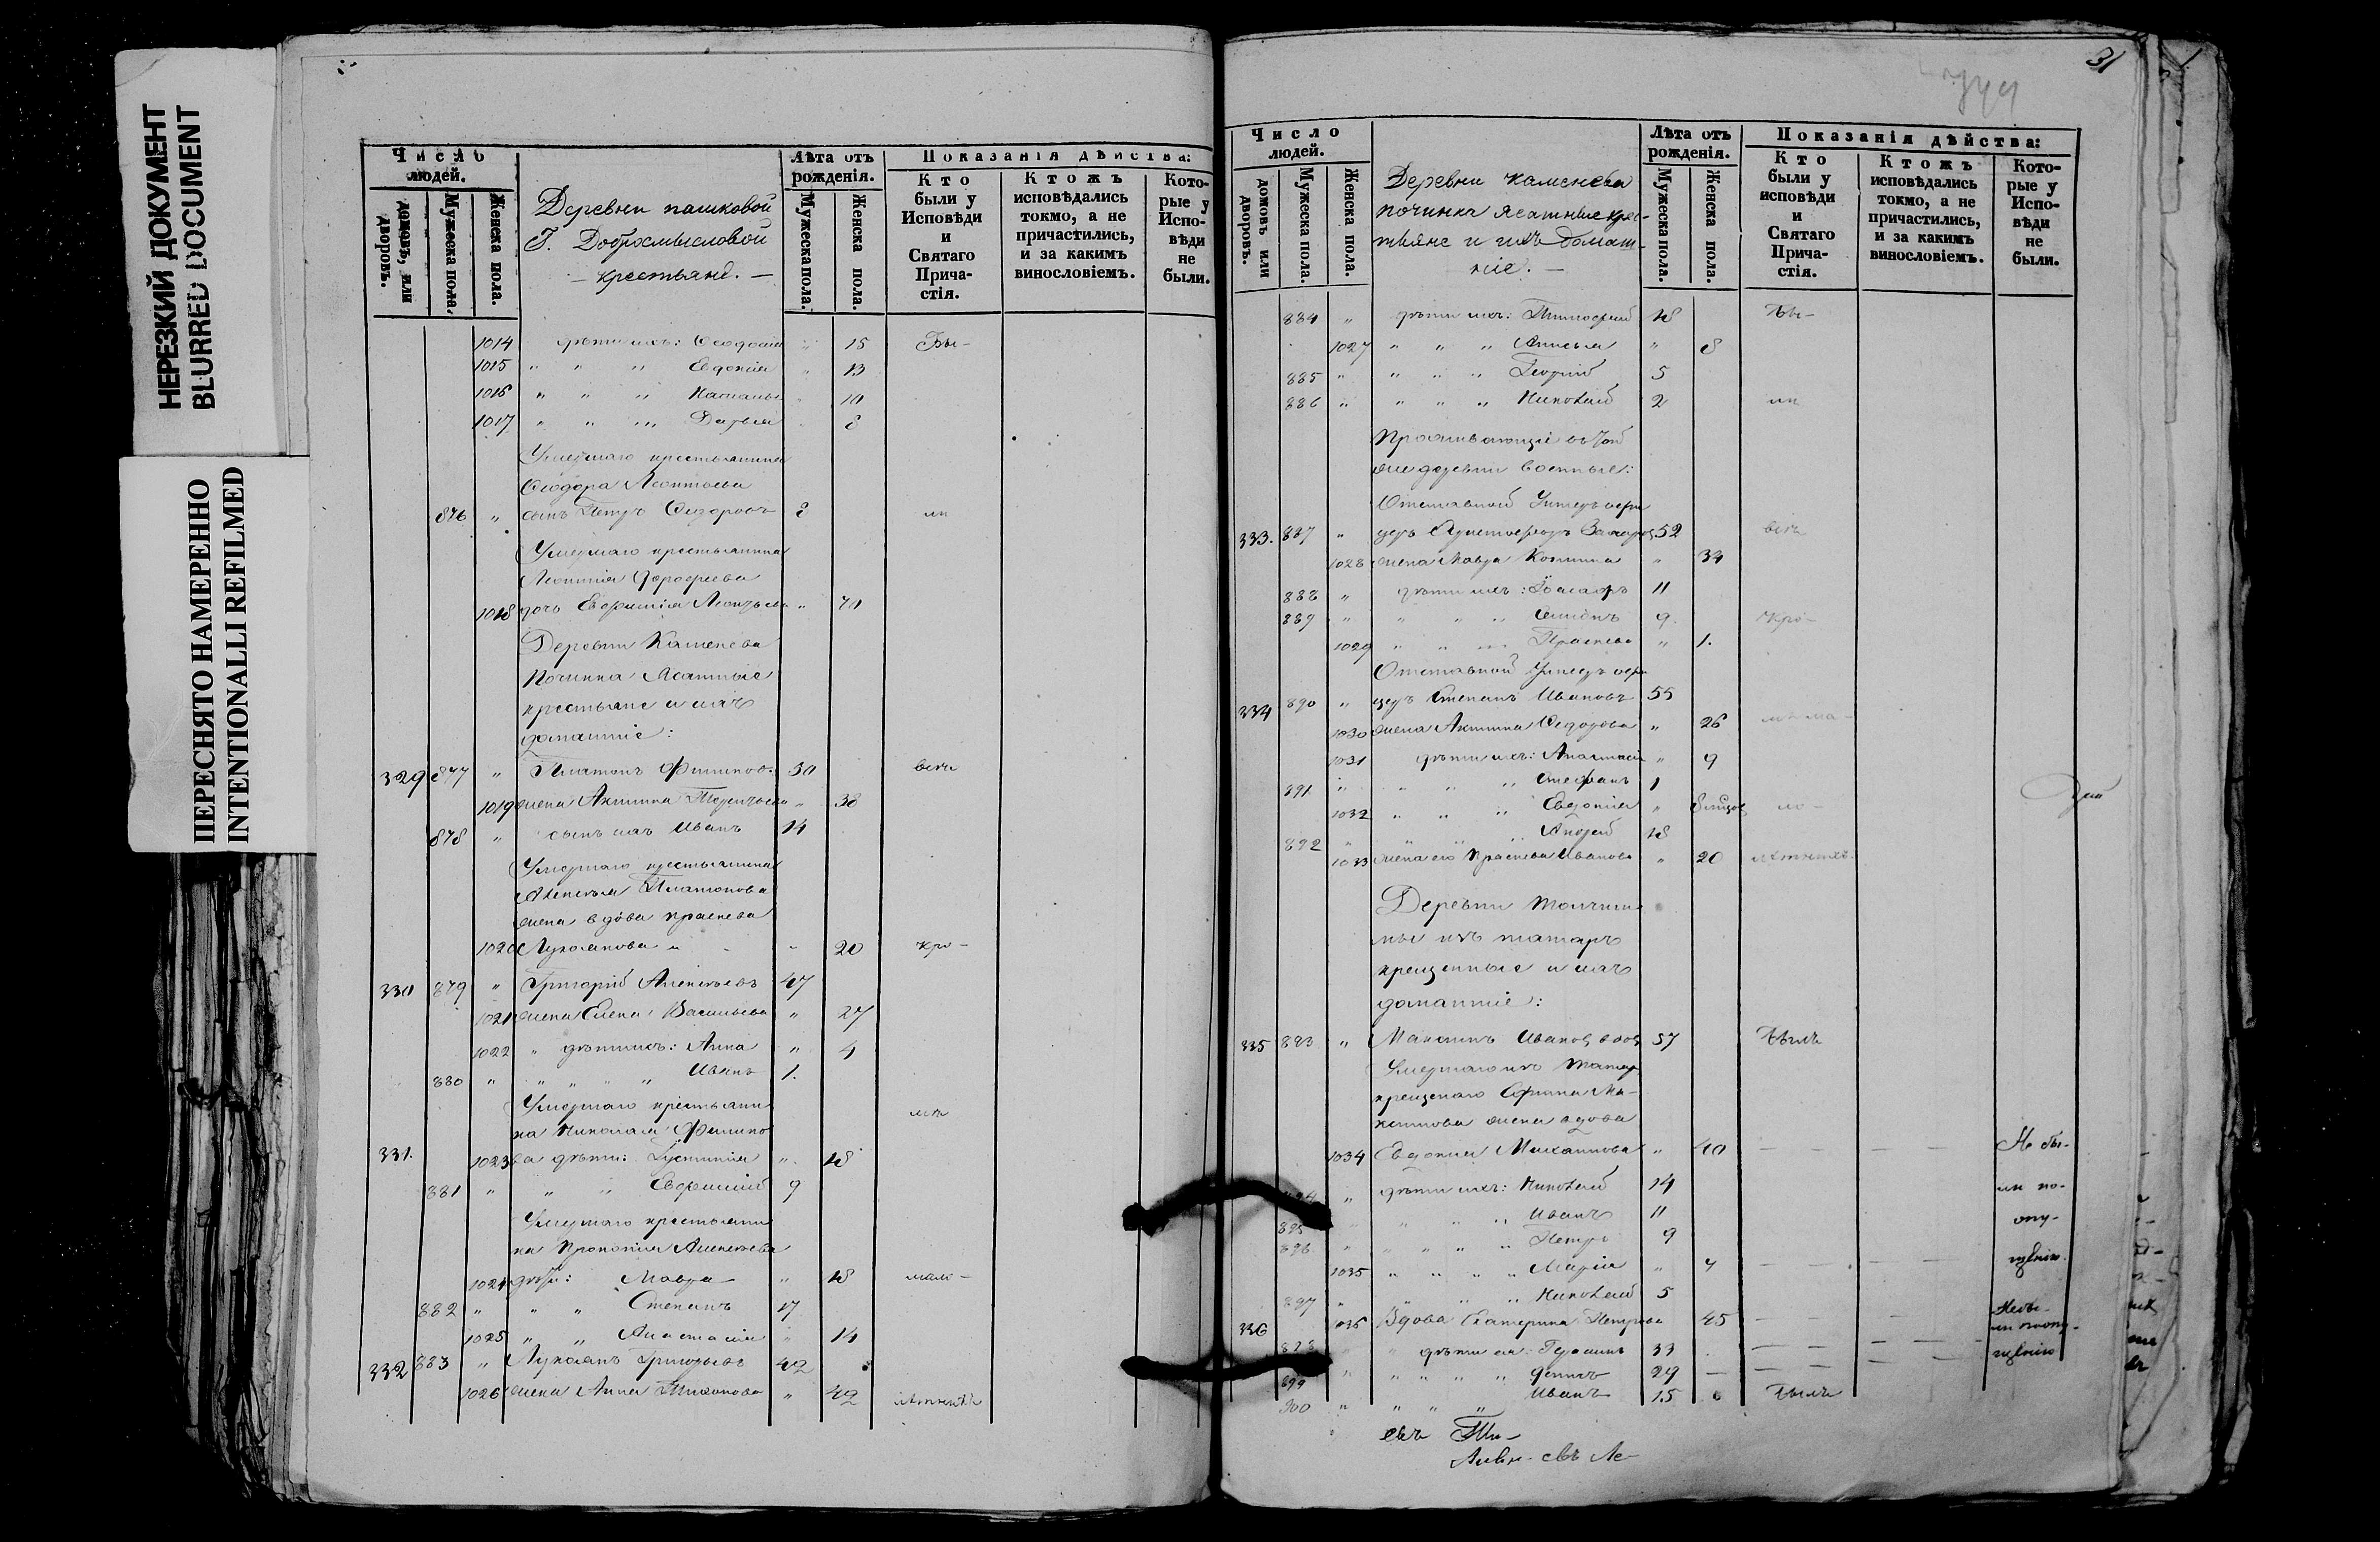 НЕРЕЗКИЙ ДОКУМЕНТ
BLURRED DOCUMENT
ПЕРЕСНЯТО НАМЕРЕННО
INTENTIONALLI REFILMED
Число людей.
домовъ, или дворовъ.
Мужеска пола.
Женска пола.
Деревни пашковой
Г. Добросмысловой
крестьяне. —
Лѣта отъ рожденія.
Мужеска пола.
Женска пола.
Показанія дѣйства:
Кто были у Исповѣди и Святаго Причастія.
Ктожъ исповѣдались токмо, а не причастились, и за какимъ винословіемъ.
Которые у Исповѣди не были.
1014 дѣти ихъ: Ѳеодосія " 15 Бы-
1015 " " " Евдокія " 13
1016 " " " Наталья " 10
1017 " " " Дарья 8
Умершаго крестьянина
Ѳеодора Леонтьева
876 " сынъ Петръ Ѳедоровъ 8 ли
Умершаго крестьянина
Леонтія Дорофеева
1018 дочь Евфимія Леонтьева " 40
Деревни Каменева
Починка Ясашные
крестьяне и ихъ
домашніе:
329 877 " Платонъ Филипов. 50 всѣ
1019 жена Акилина Терентьева " 38
878 " сынъ ихъ Иванъ 14
Умершаго крестьянина
Алексѣя Платонова
жена вдова Праскева
1020 Лукоянова " 20 кро-
330 879 " Григорій Алексѣевъ 47
1021 жена Елена Васильева " 27
1022 " дѣти ихъ: Анна " 4
880 " " " " " Иванъ 1.
Умершаго крестьяни
на Николая Филипо мѣ
331. 1023 ва дѣти: Іустинія " 18
881 " " " Евфимій 9
Умершаго крестьяни
на Прокопія Алексѣева
1024 дѣти: Мавра " 18 мало-
882 " " " Степанъ 17
1025 " " Анастасія " 14
332 883 " Лукоянъ Григорьевъ 42
1026 жена Анна Тихонова " 42 лѣтныхъ
31
Число людей.
домовъ или дворовъ.
Мужеска пола.
Женска пола.
Деревни Каменева
починка Ясашные крес-
тьяне и ихъ домаш-
ніе. —
Лѣта отъ рожденія.
Мужеска пола.
Женска пола.
Показанія дѣйства:
Кто были у исповѣди и Святаго Причастія.
Ктожъ исповѣдались токмо, а не причастились, и за какимъ винословіемъ.
Которые у Исповѣди не были.
884 " дѣти ихъ: Тимофей 18 Бы-
1027 " " " Анисья " 8
885 " " " " Георгій 5
886 " " " " Николай 2 ли
Проживающіе въ той
же деревни военные:
Отставной Унтеръ офи
333. 887 " церъ Христофоръ Захаров 52 всѣ
1028 жена Мавра Козмина " 34
888 " дѣти ихъ: 11
889 " " " " Семіонъ 9. кро-
1029 " " " Праскева " 1.
Отставной Унтеръ офи
334 890 " церъ Степанъ Ивановъ 55
1030 жена Акилина Ѳедорова " 26 мѣ ма-
1031 дѣти ихъ: Анастасія " 9
891 " " " " Стефанъ 1
1032 " " " Евдокія " 8 мѣсяц ло-
892 " " " " Андрей 18
1033 жена его Праскева Иванова " 20 лѣтныхъ.
Деревни Толчили
ны изъ татаръ
крещенные и ихъ
домашніе:
335 893 " Максимъ Иванов вдов 57 былъ
Умершаго изъ татар
крещенаго Ефима Ма-
ксимова жена вдова
1034 Евдокия Михаилова " 40 — — — — Не бы-
894 " дѣти ихъ: Николай 14 ли по-
895 " " " " Иванъ 11 опу-
896 " " " " Петръ 9
1035 " " " " Марія " 7 — — — — щѣнію.
897 " " " " Николай 5
336 1036 Вдова Екатерина Петрова 45 — — — — Небы-
ли по опу-
898 " дѣти ея: Герасимъ 33 — — — — щѣнію
899 " " " " Денисъ 29 —
900 " " " " Иванъ 15 былъ